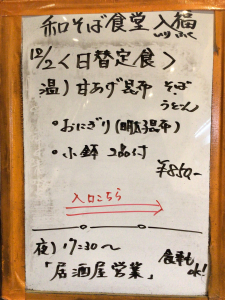 和そば食堂 入福
いり ふく
12/2〈日替定食〉
温）甘あげ昆布 そば
うどん
・おにぎり（明太昆布）
・小鉢 2品付
¥860-
入口こちら
夜）17:30〜
「居酒屋営業」
食事も
ok!